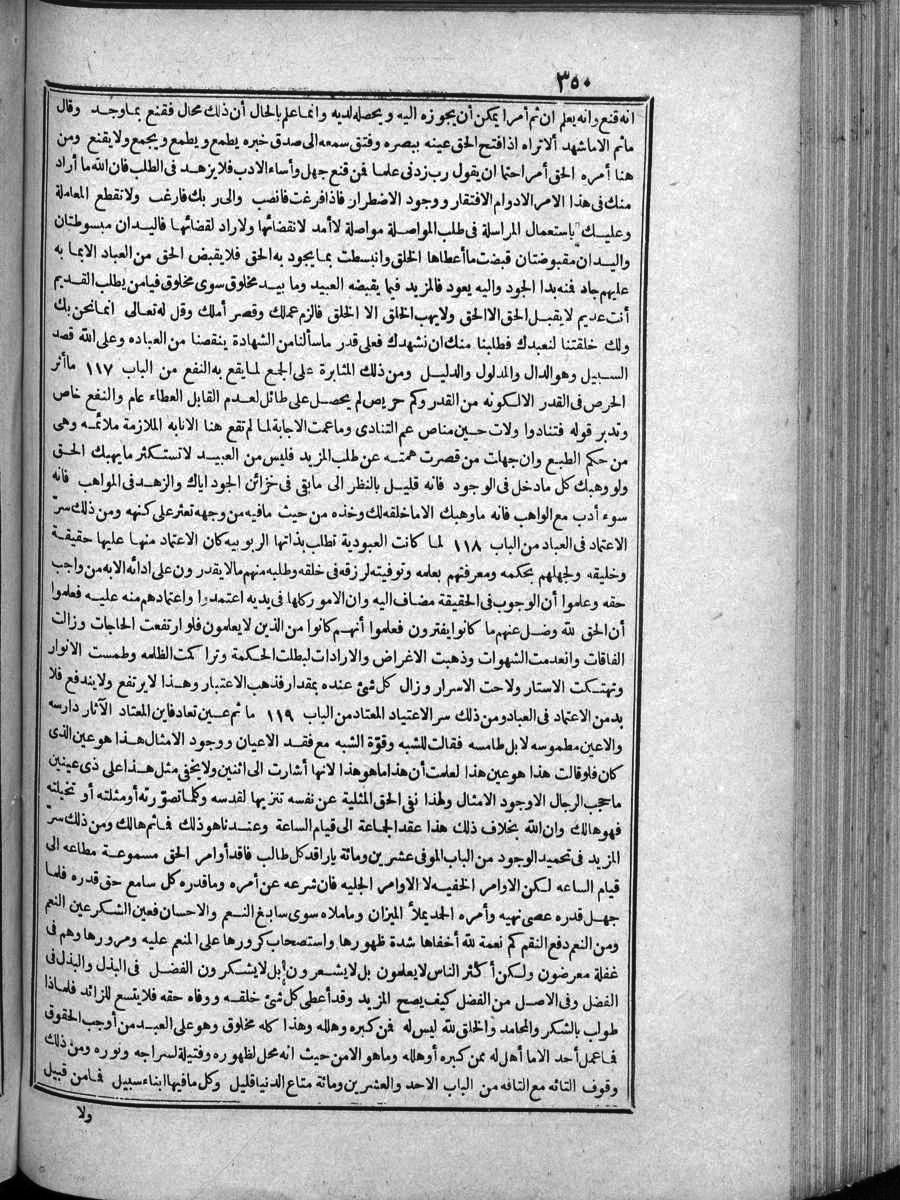 ٣٥٠
انه قنع وانه يعلم ان ثم أمرا يمكن أن يجوزه اليه ويحصله لديه وانما علم بالحال أن ذلك محال فقنع بما وجد وقال
ماثم الاماشهد ألا تراه اذا فتح الحق عينه ببصره وفتق سمعه الى صدق خبره يطمع ويطمع ويجمع ولا يقنع ومن
هنا أمره الحق أمرا حتما ان يقول رب زدنى علما فمن قنع جهل وأساء الادب فلا يزهد فى الطلب فان الله ما أراد
منك فى هذا الامر الادوام الافتقار ووجود الاضطرار فاذا فرغت فانصب والى ربك فارغب ولا تقطع المعاملة
وعليك باستعمال المراسلة فى طلب المواصلة مواصلة لا أمد لانقضائها ولا راد لقضائها فاليدان مبسوطتان
واليدان مقبوضتان قبضت ما أعطاها الخلق وانبسطت بما يجود به الحق فلا يقبض الحق من العباد الابما به
عليهم جاد فنه بدا الجود واليه يعود فالمزيد فيما يقبضه العبيد وما بيد مخلوق سوى مخلوق فيامن يطلب القديم
أنت عديم لا يقبل الحق الا الحق ولا يهب الخلق الا الخلق فالزم عملك وقصر أملك وقل له تعالى انما نحن بك
ولك خلقتنا لنعبدك فطلبنا منك ان نشهدك فعلى قدر ما سألنا من الشهادة ينقصنا من العباده وعلى الله قصد
السبيل وهو الدال والمدلول والدليل ومن ذلك المثابرة على الجمع لما يقع به النفع من الباب ١١٧ ما أثر
الحرص فى القدر الالكونه من القدر وكم حريص لم يحصل على طائل لعدم القابل العطاء عام والنفع خاص
وتدبر قوله فتنادوا ولات حين مناص عم التنادى وما عمت الاجابة لما لم تقع هنا الانابه الملازمة ملائمه وهى
من حكم الطبع وان جهلت من قصرت همته عن طلب المزيد فليس من العبيد لا تستكثر ما يهبك الحق
ولو وهبك كل مادخل فى الوجود فانه قليل بالنظر الى مابقى فى خزائن الجود اياك والزهد فى المواهب فانه
سوء أدب مع الواهب فانه ما وهبك الاما خلقه لك وخذه من حيث مافيه من وجهه تعثر على كنهه ومن ذلك سرّ
الاعتماد فى العباد من الباب ١١٨ لما كانت العبودية تطلب بذاتها الربوبيه كان الاعتماد منها عليها حقيقة
وخليقه ولجهلهم بحكمه ومعرفتهم بعلمه وتوفيته لرزقه فى خلقه وطلبه منهم مالا يقدرون على ادائه الابه من واجب
حقه وعلموا أن الوجوب فى الحقيقة مضاف اليه وان الامور كلها فى يديه اعتمدوا واعتمادهم منه عليه فعلموا
أن الحق لله وضل عنهم ما كانوا يفترون فعلموا أنهم كانوا من الذين لا يعلمون فلو ارتفعت الحاجات وزالت
الفاقات وانعدمت الشهوات وذهبت الاغراض والارادات لبطلت الحكمة وتراكمت الظلمه وطمست الانوار
وتهتكت الاستار ولاحت الاسرار وزال كل شئ عنده بمقدار فذهب الاعتبار وهذا لا يرتفع ولا يندفع فلا
بد من الاعتماد فى العباد ومن ذلك سر الاعتياد المعتاد من الباب ١١٩ ماثم عين تعاد فاين المعتاد الآثار دارسه
والاعين مطموسه لا بل طامسه فقالت للشبه وقوّة الشبه مع فقد الاعيان ووجود الامثال هذا هو عين الذى
كان فلو قالت هذا هو عين هذا لعلمت أن هذا ما هو هذا لانها أشارت الى اثنين ولا يخفى مثل هذا على ذى عينين
ما حجب الرجال الا وجود الامثال ولهذا نفى الحق المثلية عن نفسه تنزيها لقدسه وكلما تصوّرته أو مثلته أو تخيلته
فهو هالك وان الله بخلاف ذلك هذا عقد الجماعة الى قيام الساعة وعندنا هو ذلك فماثم هالك ومن ذلك سرّ
المزيد فى تحميد الوجود من الباب الموفى عشرين ومائة ياراقد كل طالب فاقد أوامر الحق مسموعة مطاعه الى
قيام الساعه لكن الاوامر الخفيه لا الاوامر الجليه فان شرعه عن أمره وما قدره كل سامع حق قدره فلما
جهل قدره عصى نهيه وأمره الحمد يملأ الميزان وما ملاه سوى سابغ النعم والاحسان فعين الشكر عين النعم
ومن النعم دفع النقم كم نعمة لله أخفاها شدة ظهورها واستصحاب كرورها على المنعم عليه ومرورها وهم فى
غفلة معرضون ولكن أكثر الناس لا يعلمون بل لا يشعرون بل لا يشكرون الفضل فى البذل والبذل فى
الفضل وفى الاصل من الفضل كيف يصح المزيد وقد أعطى كل شئ خلقه ووفاه حقه فلا يتسع للزائد فلماذا
طولب بالشكر والمحامد والخلق لله ليس له فمن كبره وهلله وهذا كله مخلوق وهو على العبد من أوجب الحقوق
فما عمل أحد الاما أهل له ممن كبره أو هلله وما هو الامن حيث انه محل لظهوره وفتيلة لسراجه ونوره ومن ذلك
وقوف التائه مع التافه من الباب الاحد والعشرين ومائة متاع الدنيا قليل وكل ما فيها ابناء سبيل فما من قبيل
ولا